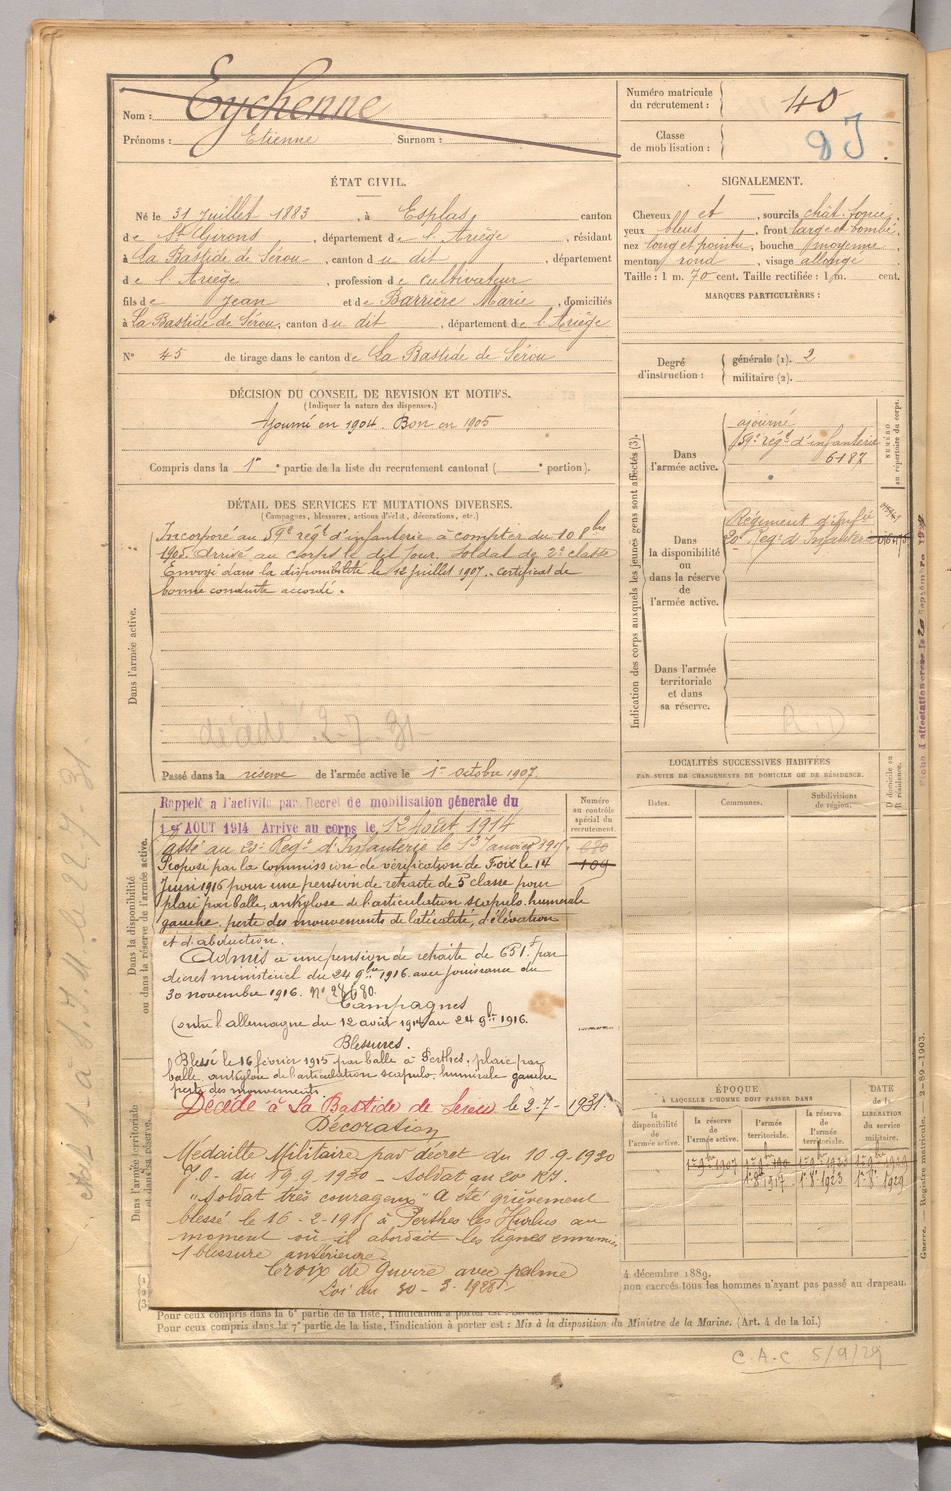 Nom : Eychenne
Prénoms : Etienne Surnom :
Numéro matricule
du recrutement : 40
Classe
de mobilisation :
ÉTAT CIVIL.
Né le 31 Juillet 1883, à Esplas, canton
de St Girons, département de l'Ariège, résidant
à La Bastide de Sérou, canton du dit, département
de l'Ariège, profession de cultivateur
fils de Jean et de Barrière Marie, domiciliés
à La Bastide de Sérou, canton du dit, département de l'Ariège
N° 45 de tirage dans le canton de La Bastide de Sérou
DÉCISION DU CONSEIL DE REVISION ET MOTIFS.
(Indiquer la nature des dispenses.)
Ajourné en 1904. Bon en 1905
Compris dans la 1re partie de la liste du recrutement cantonal ( portion).
SIGNALEMENT.
Cheveux et, sourcils chât. foncé,
yeux bleus, front large et bombé,
nez long et pointu, bouche moyenne
menton rond, visage allongé
Taille : 1 m. 70 cent. Taille rectifiée : 1 m. cent.
MARQUES PARTICULIÈRES :
Degré
d'instruction :
générale (1). 2
militaire (2).
DÉTAIL DES SERVICES ET MUTATIONS DIVERSES.
(Campagnes, blessures, actions d'éclat, décorations, etc.)
Dans l'armée active.
Incorporé au 59e régt d'infanterie à compter du 10 8bre
1905. Arrivé au corps le dit jour. Soldat de 2e classe
Envoyé dans la disponibilité le 12 Juillet 1907. Certificat de
bonne conduite accordé.
décédé 2-7-31
Passé dans la réserve de l'armée active le 1er octobre 1907.
Indication des corps auxquels les jeunes gens sont affectés (3).
NUMÉRO
au répertoire du corps.
Dans
l'armée active.
ajourné
59e régt d'infanterie
6187
Dans
la disponibilité
ou
dans la réserve
de
l'armée active.
Régiment d'Infie
20e Regt d'Infanterie
Dans l'armée
territoriale
et dans
sa réserve.
R.D
LOCALITÉS SUCCESSIVES HABITÉES
PAR SUITE DE CHANGEMENTS DE DOMICILE OU DE RÉSIDENCE.
Dates.
Communes.
Subdivisions
de région.
D domicile ou
R résidence.
Dans la disponibilité
ou dans la réserve de l'armée active.
Numéro
au contrôle
spécial du
recrutement.
109
Rappelé à l'activité par Décret de mobilisation générale du
1er AOUT 1914 Arrivé au corps le 12 Août 1914
Passé au 20e Regt d'Infanterie le 13 Janvier 191
Proposé par la commission de vérification de Foix le 14
Juin 1916 pour une pension de retraite de 5 classe pour
plaie par balle, ankylose de l'articulation scapulo-humérale
gauche, perte des mouvements de latéralité, d'élévation
et d'abduction.
Admis à une pension de retraite de 651f par
décret ministériel du 24 9bre 1916. avec jouissance du
30 novembre 1916. N° 28680.
Campagnes
Contre l'allemagne du 12 août 1914 au 24 9bre 1916.
Blessures.
Blessé le 16 février 1915 par balle à Perthes, plaie par
balle, ankylose de l'articulation scapulo-humérale gauche
perte des mouvements.
Décédé à La Bastide de Sérou le 2-7-1931.
Décoration
Médaille Militaire par décret du 10-9-1920
J.O. du 19.9.1920 - Soldat au 20 RI.
"Soldat très courageux" A été grièvement
blessé le 16-2-1915 à Perthes les Hurlus au
moment où il abordait les lignes ennemies
1 blessure antérieure
Croix de Guerre avec palme
Loi du 30-3-1928
Dans l'armée territoriale
et dans sa réserve.
ÉPOQUE
À LAQUELLE L'HOMME DOIT PASSER DANS
la
disponibilité
de
l'armée active.
la réserve
de
l'armée active.
l'armée
territoriale.
la réserve
de
l'armée
territoriale.
DATE
de la
LIBÉRATION
du service
militaire.
1er 8bre 1917
1er 8 1923
1er 8 1929
4 décembre 1889.
non exercés tous les hommes n'ayant pas passé au drapeau.
Pour ceux compris dans la 6e partie de la liste, l'indication à porter est :
Pour ceux compris dans la 7e partie de la liste, l'indication à porter est : Mis à la disposition du Ministre de la Marine. (Art. 4 de la loi.)
C.A.C. 5/9/29
Guerre. Registre matricule. — 2-89-1903.